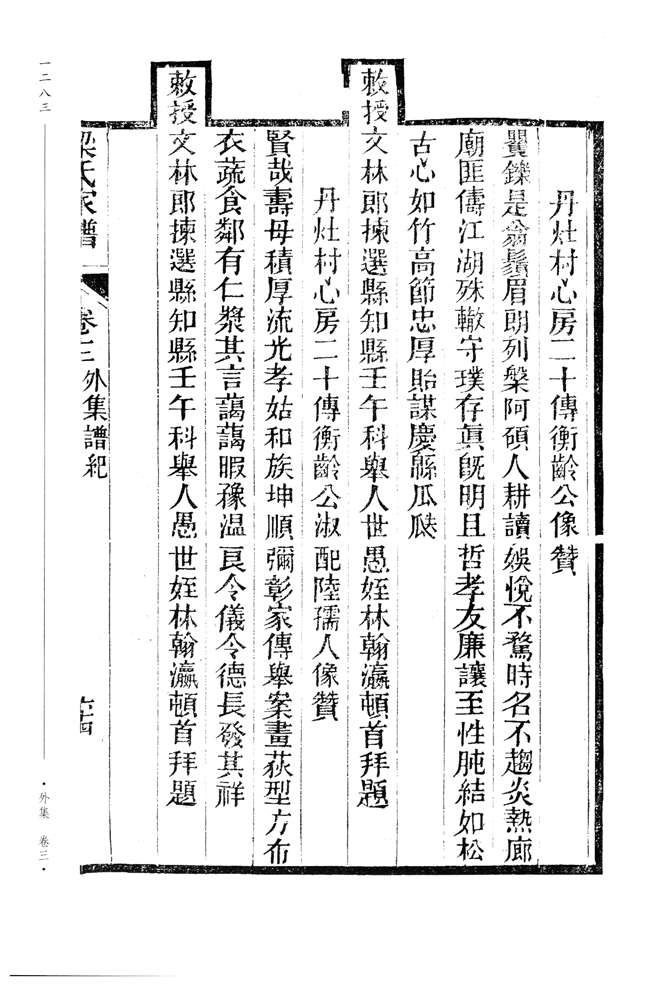 丹灶村心房二十傳衡齡公像贊
矍鑠是翁鬚眉朗列槃阿碩人耕讀娛悅不騖時名不趨炎熱廊
廟匪儔江湖殊轍守璞存眞旣明且哲孝友廉讓至性肫結如松
古心如竹高節忠厚貽謀慶緜瓜瓞
敕授文林郎揀選縣知縣壬午科舉人世愚姪林翰瀛頓首拜題
丹灶村心房二十傳衡齡公淑配陸孺人像贊
賢哉壽母積厚流光孝姑和族坤順彌彰家傳舉案畫荻型方布
衣蔬食鄰有仁漿其言藹藹暇豫溫良令儀令德長發其祥
敕授文林郎揀選縣知縣壬午科舉人愚世姪林翰瀛頓首拜題
梁氏家譜
卷三 外集譜紀
六十四
一二八三
·外集 卷三·